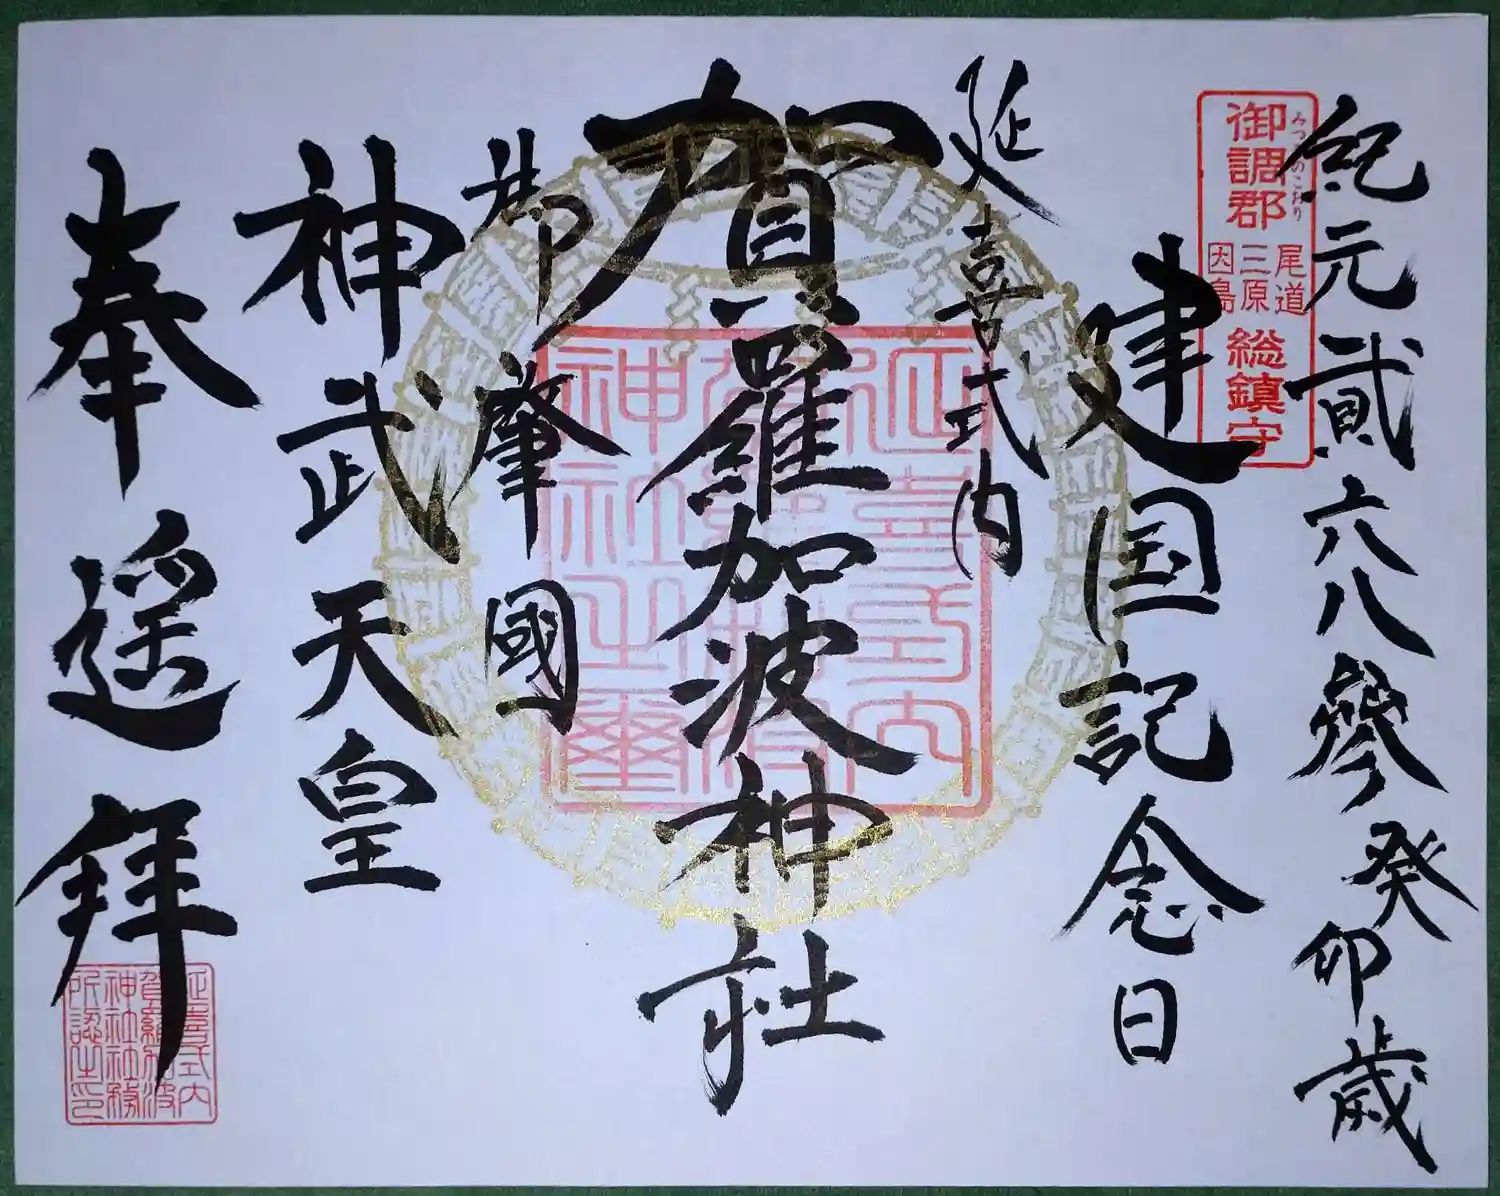 紀元貳六八參癸卯歳
御調郡
みつぎのこおり
尾道
三原
因島
総鎮守
建国記念日
延喜式内
賀羅加波神社
肇國
神武天皇
奉遥拝
延喜式内
賀羅加波
神社之璽
延喜式内
賀羅加波
神社社務
所認之印